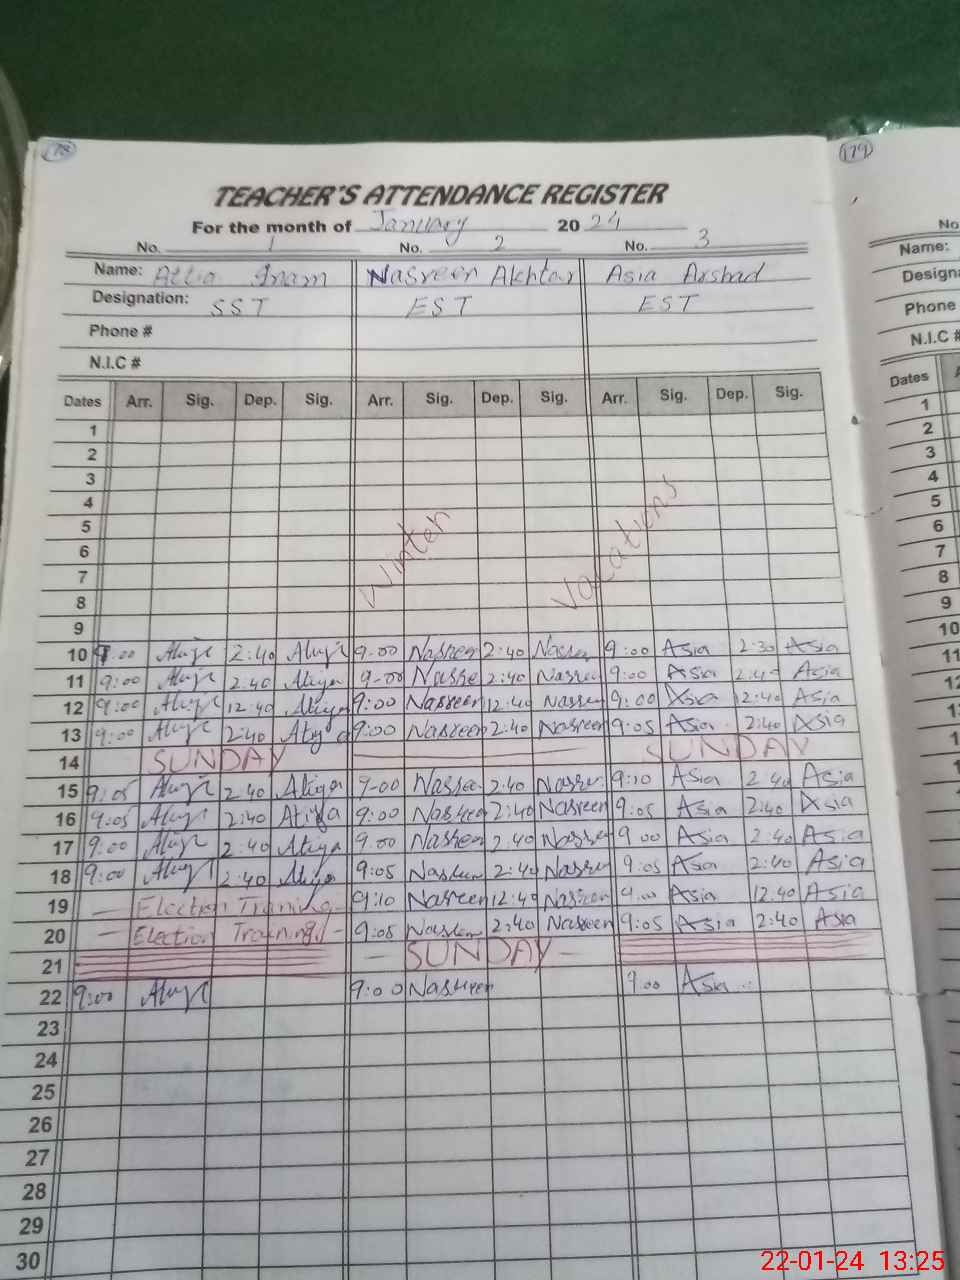 178
179
TEACHER'S ATTENDANCE REGISTER
For the month of January 2024
No. 1 No. 2 No. 3
Name: Attia Inam Nasreen Akhtar Asia Arshad
Designation: SST EST EST
Phone #
N.I.C #
Dates Arr. Sig. Dep. Sig. Arr. Sig. Dep. Sig. Arr. Sig. Dep. Sig.
1
2
3
4
5
6
7
8
9
Winter Vacations
10 9:00 2:40 9-00 Nasreen 2:40 9:00 Asia 2:30 Asia
11 9:00 2:40 Atiya 9-00 2:40 Nasreen 9:00 Asia 2:40 Asia
12 9:00 12:40 Atiya 9:00 Nasreen 12:40 Nasreen 9:00 Asia 12:40 Asia
13 9:00 2:40 9:00 Nasreen 2:40 Nasreen 9:05 Asia 2:40 Asia
14 SUNDAY SUNDAY
15 9:05 2:40 Atiya 9-00 2:40 9:10 Asia 2:40 Asia
16 9:05 2:40 Atiya 9:00 Nasreen 2:40 Nasreen 9:05 Asia 2:40 Asia
17 9:00 2:40 Atiya 9:00 Nasreen 2:40 9:00 Asia 2:40 Asia
18 9:00 2:40 Atiya 9:05 Nasreen 2:40 9:05 Asia 2:40 Asia
19 Election Training 9:10 Nasreen 12:40 Nasreen 9:00 Asia 12:40 Asia
20 Election Training 9:05 2:40 Nasreen 9:05 Asia 2:40 Asia
21 SUNDAY
22 9:00 9:00 Nasreen 9:00 Asia
23
24
25
26
27
28
29
30
No
Name:
Phone
N.I.C #
Dates
1
2
3
4
5
6
7
8
9
10
22-01-24 13:25